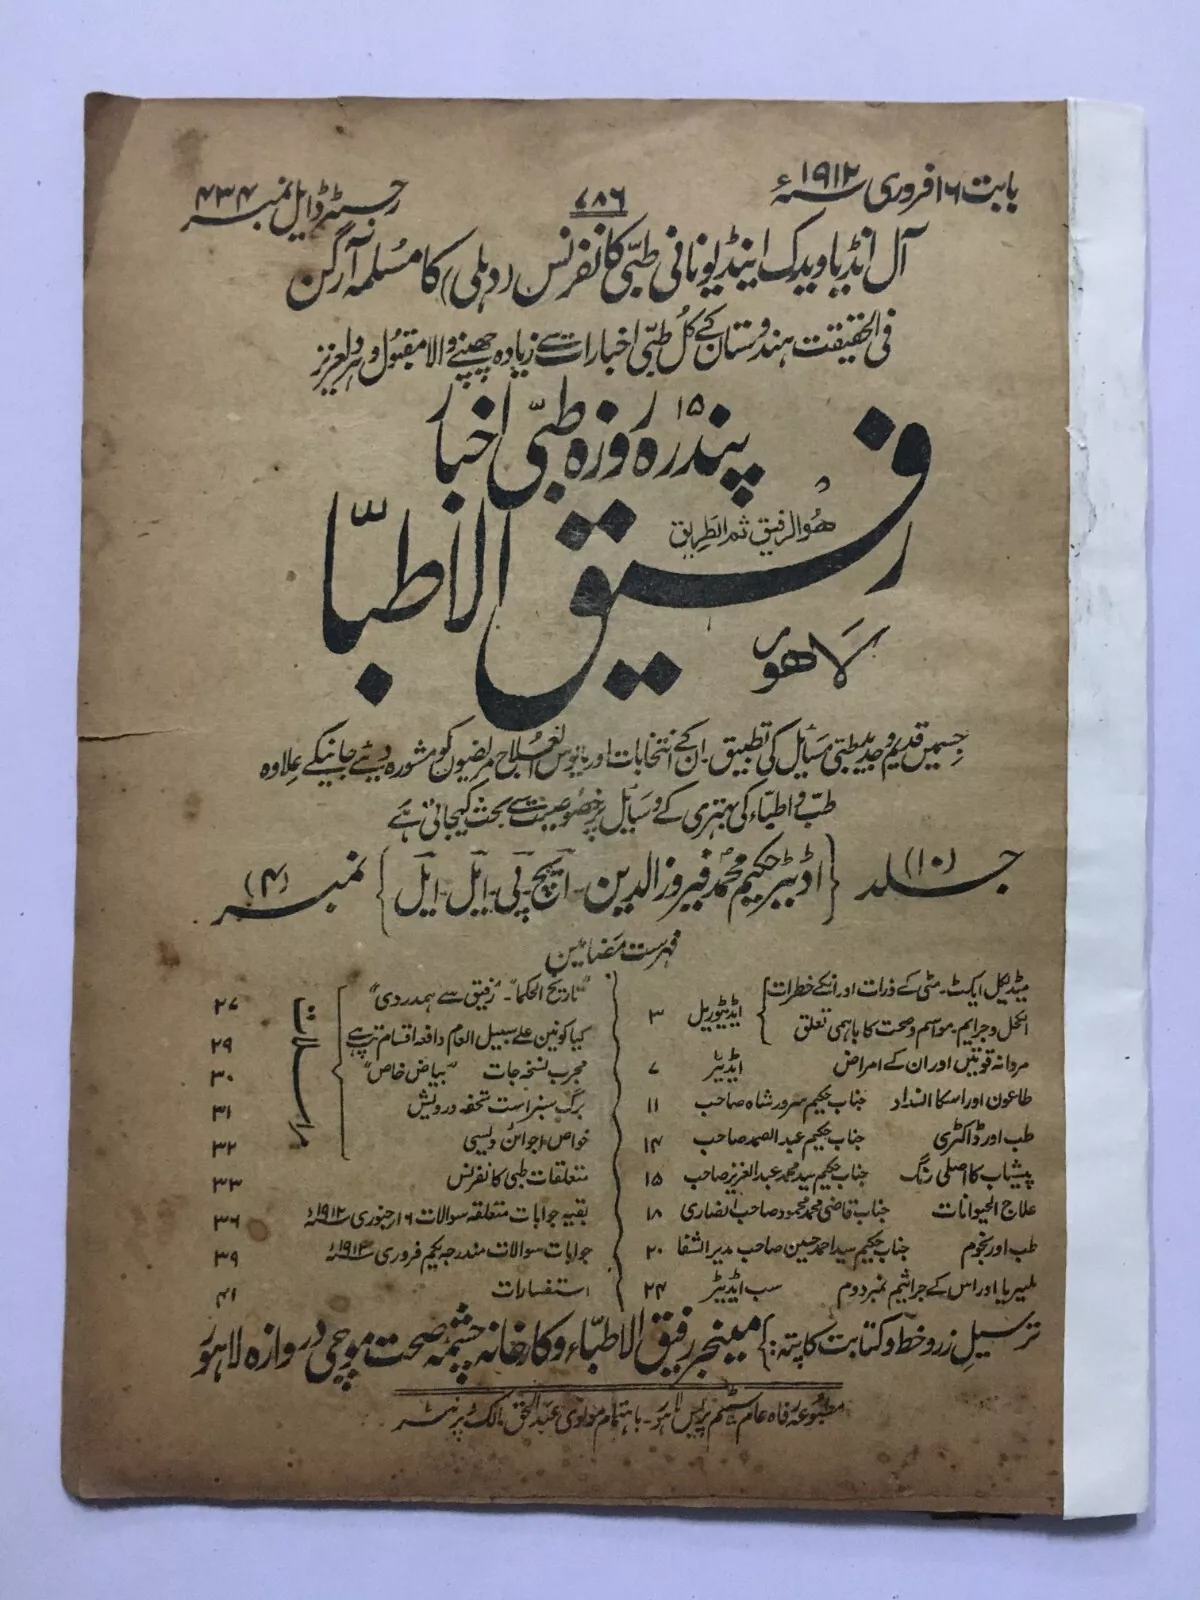 بابت ۱۶ فروری سنہ ۱۹۱۲ء
۷۸۶
رجسٹرڈ ایل نمبر ۴۳۴
آل انڈیا ویدک اینڈ یونانی طبّی کانفرنس (دہلی) کا مسلمہ آرگن
فی الحقیقت ہندوستان کے کُل طبّی اخبارات سے زیادہ چھپنے والا مقبول و ہردلعزیز
۱۵ پندرہ روزہ طبّی اخبار
ھو الرفیق ثم الطریق
رفیق الاطبّا
لاھور
جسمیں قدیم و جدید طبّی مسائل کی تطبیق۔ ان کے انتخابات اور مایوس العلاج مریضوں کو مشورہ دیئے جانیکے علاوہ
طبّ و اطبّاء کی بہتری کے وسایل پر خصوصیت سے بحث کیجاتی ہے
جلد (۱۰) {اڈیٹر حکیم محمد فیروزالدین۔ ایچ۔ پی۔ ایل۔ ایل} نمبر (۴)
فہرست مضامین
میڈیکل ایکٹ۔ مٹی کے ذرات اور انکے خطرات
الکحل و جرایم۔ مواسم و صحت کا باہمی تعلق
ایڈیٹوریل ۳
مردانہ قوتیں اور ان کے امراض ایڈیٹر ۷
طاعون اور اسکا انسداد جناب حکیم سرور شاہ صاحب ۱۱
طب اور ڈاکٹری جناب حکیم عبدالصمد صاحب ۱۴
پیشاب کا اصلی رنگ جناب حکیم سید محمد عبدالعزیز صاحب ۱۵
علاج الحیوانات جناب قاضی محمد محمود صاحب انصاری ۱۸
طب اور نجوم جناب حکیم سید احمد حسین صاحب مدیر الشفا ۲۰
ملیریا اور اس کے جراثیم نمبر دوم سب ایڈیٹر ۲۴
مراسلات
"تاریخ الحکما"۔ "رفیق سے ہمدردی" ۲۷
کیا کونین علے سبیل العام دافعہ اقسام تپ ہے ۲۹
مجرب نسخہ جات "بیاض خاص" ۳۰
برگ سبز است تحفہ درویش ۳۱
خواص اجوائن دیسی ۳۲
متعلقات طبی کانفرنس ۳۳
بقیہ جوابات متعلقہ سوالات ۱۶ جنوری سنہ ۱۹۱۲ء ۳۶
جوابات سوالات مندرجہ یکم فروری سنہ ۱۹۱۲ء ۳۹
استفسارات ۴۱
ترسیل زر و خط و کتابت کا پتہ:} مینجر رفیق الاطبّاء و کارخانہ چشمۂ صحت موچی دروازہ لاہور
مطبوعہ رفاہ عام سٹیم پریس لاہور۔ باہتمام مولوی عبدالحق مالک پرنٹر